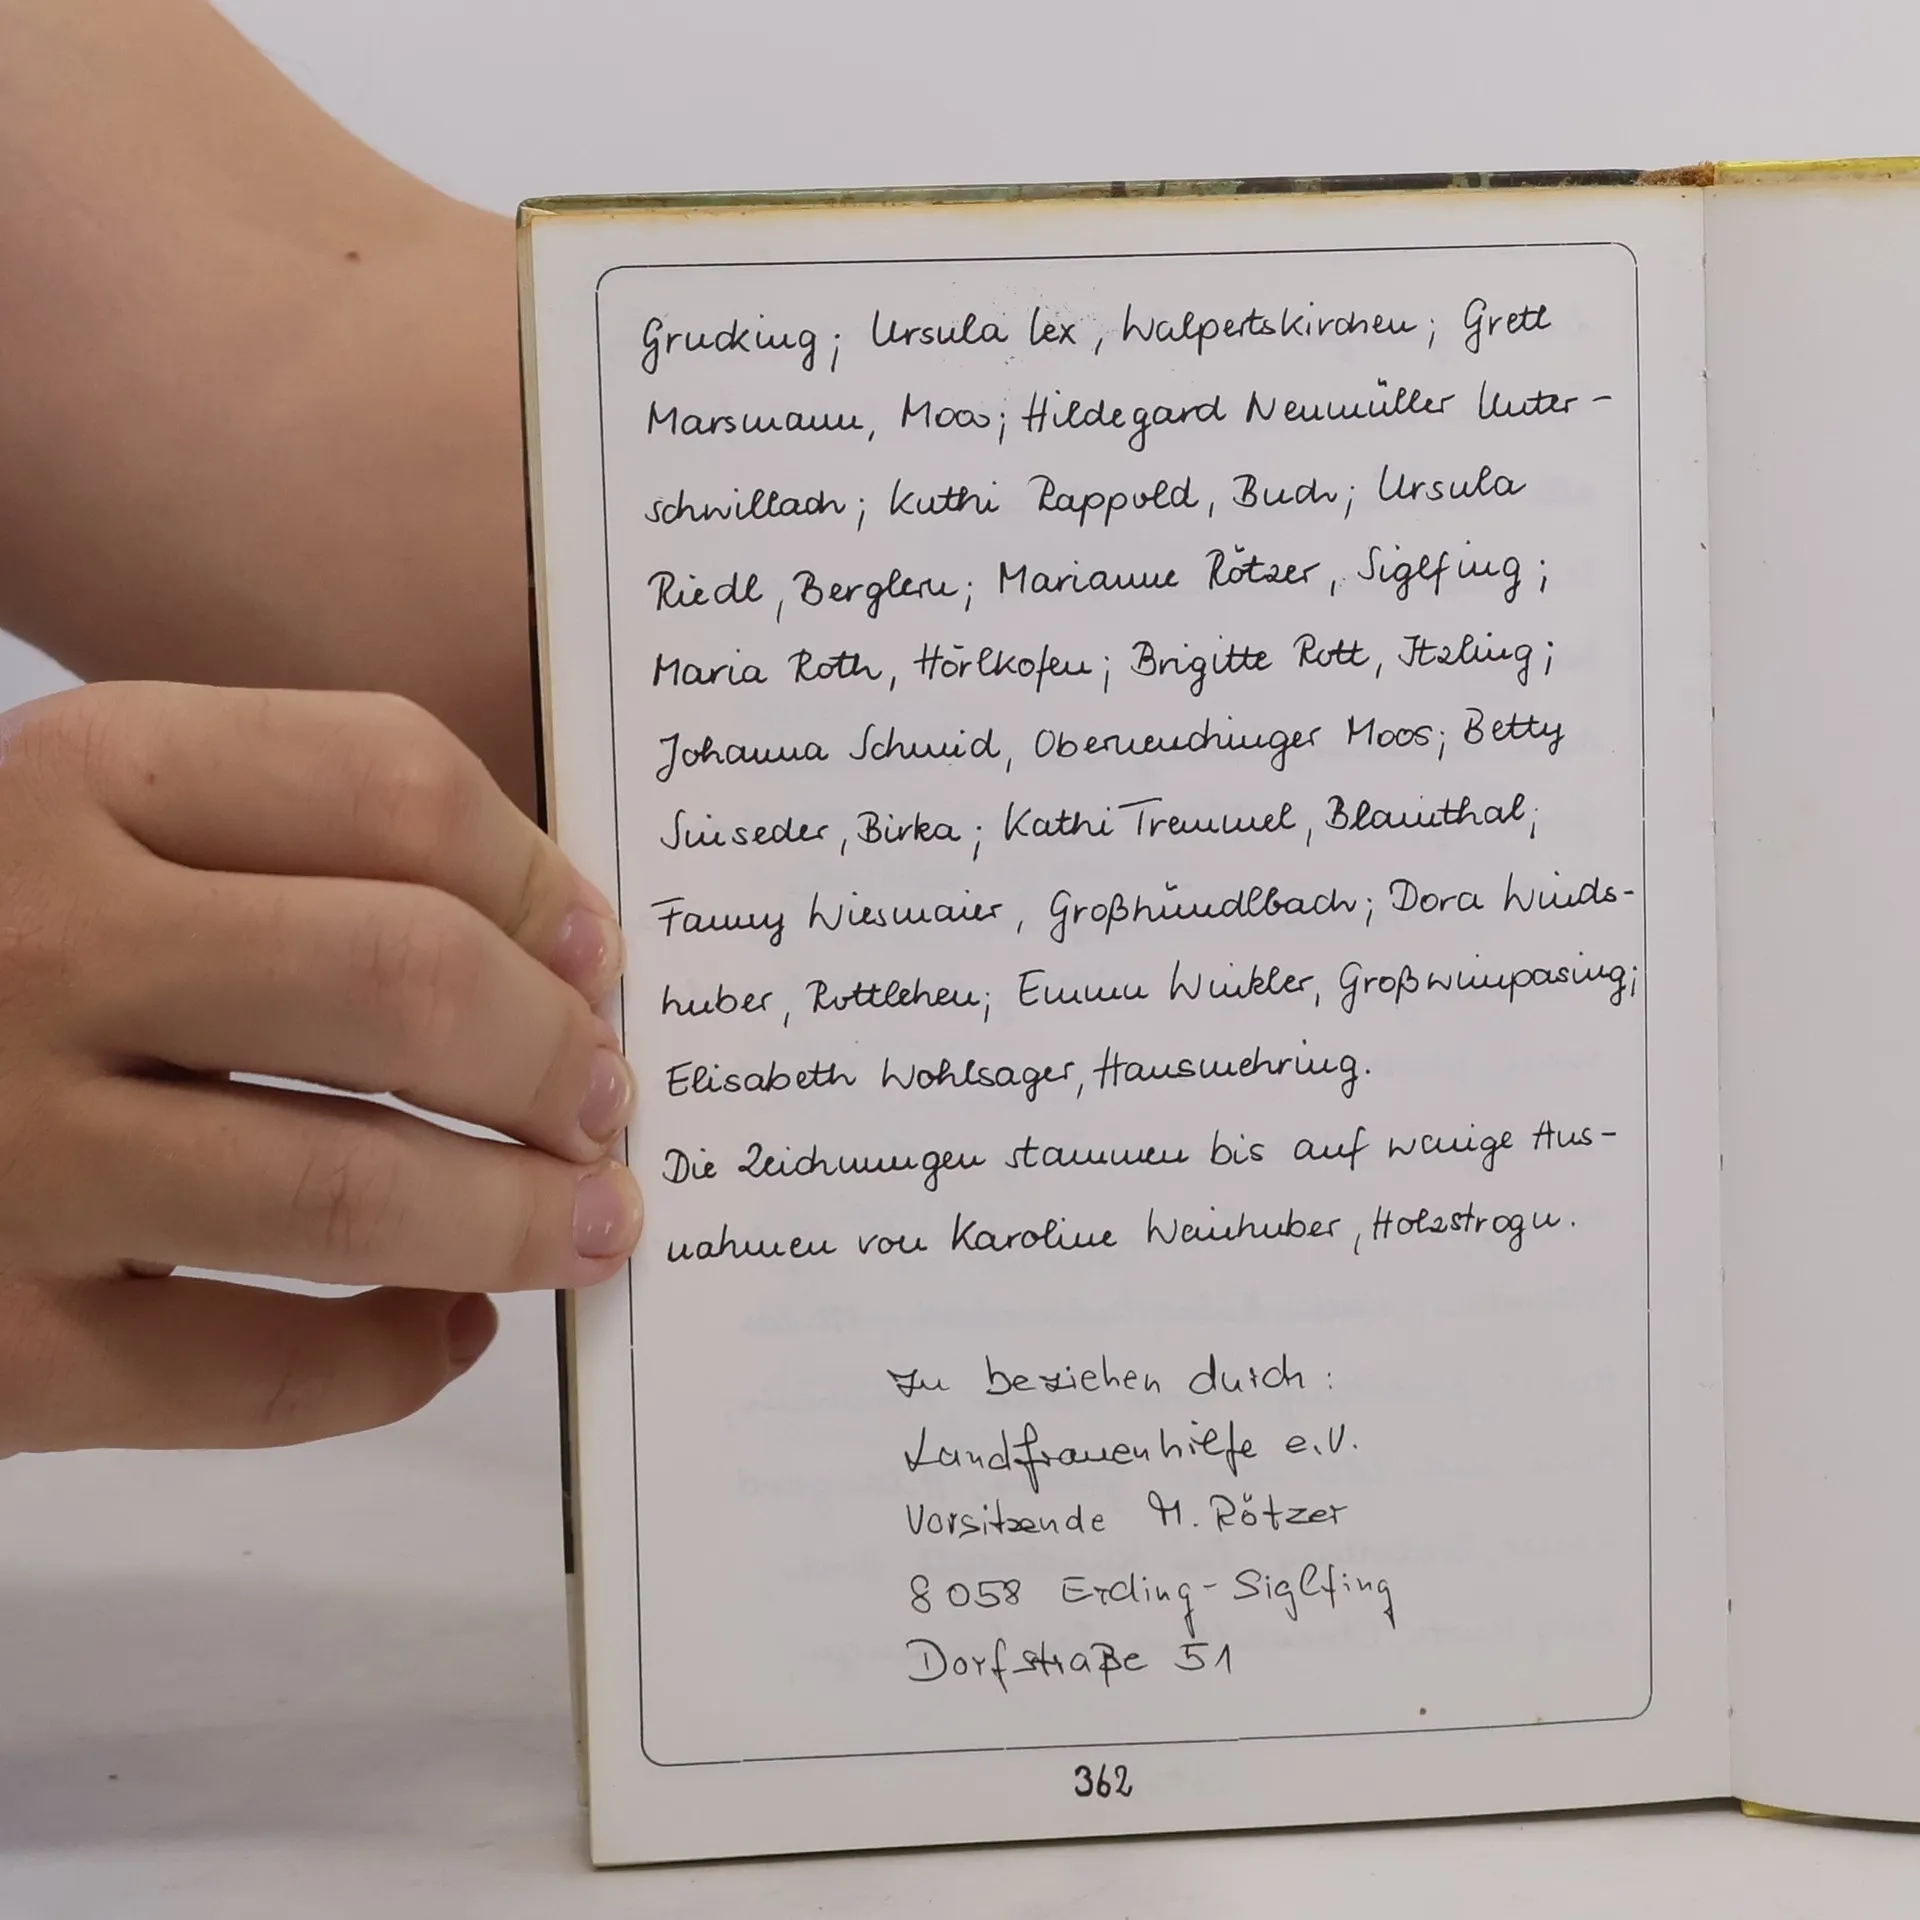 Grucking; Ursula Lex, Walpertskirchen; Gretl
Marsmann, Moos; Hildegard Neumüller Unter-
schwillach; Kathi Rappold, Buch; Ursula
Riedl, Berglern; Marianne Rötzer, Siglfing;
Maria Roth, Hörlkofen; Brigitte Rott, Itzling;
Johanna Schmid, Oberneuchinger Moos; Betty
Sinseder, Birka; Kathi Tremmel, Blainthal;
Fanny Wiesmaier, Großhündlbach; Dora Winds-
huber, Rottlehen; Emma Winkler, Großwimpasing;
Elisabeth Wohlsager, Hausmehring.
Die Zeichnungen stammen bis auf wenige Aus-
nahmen von Karoline Weinhuber, Holzstrogn.
Zu beziehen durch:
Landfrauenhilfe e.V.
Vorsitzende M. Rötzer
8058 Erding-Siglfing
Dorfstraße 51
362